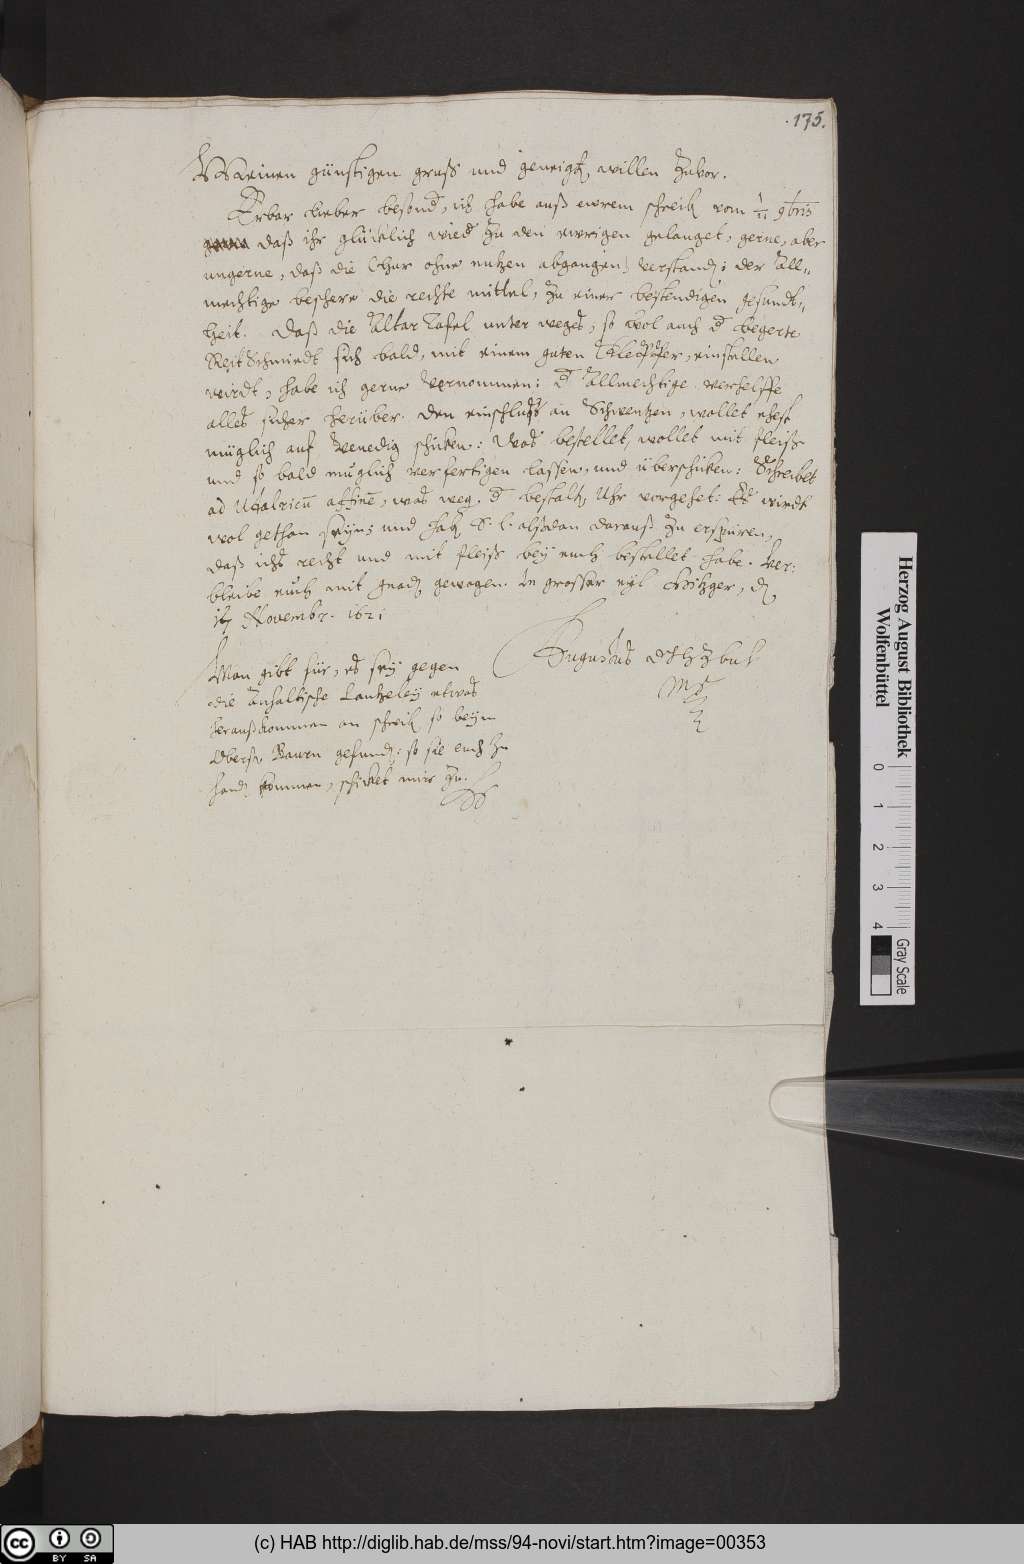 175.
Meinen günstigen gruß und geneigt willen zuvor.
Erbar lieber besond, ich habe auß ewrem schreib vom 1/11 9bris
daß ihr glücklich wied zu den ewrigen gelanget, gerne, aber
ungerne, daß die Chur ohne nutzen abgangen, verstand: der All-
mechtige beschere die rechte mittel, zu einer bestendigen gesundt-
heit. Daß die Altar Tafel unter weges, so wol auch d begerte
ReitSchmiedt sich bald, mit einem guten einstellen
wirdt, habe ich gerne vernommen: d Allmechtige verhelffe
alles sicher herüber. den einschluß an Schwentzen, wollet ehest
müglich auf Venedig schicken: Was bestellet, wollet mit fleiß
und so bald müglich verfertigen lassen, und überschicken: Schreibet
ad Udalricū affinē, was weg. d bestalt Uhr vorgehet: Es wirdt
wol gethan seyn; und hat S. L. alßdan darauß zu erspüren,
daß ichs recht und mit fleiß bey euch bestellet habe. Ver-
bleibe euch mit gnad gewogen. In grosser eyl Hitzger, d
17 Novembr. 1621
Augustus HZBuL
Mp
Man gibt für, es sey gegen
die Anhaltische Cantzeley etwas
heraußkommen an schreib so beym
Obersn Bauren gefund: so sie euch zu
hand kommen, schicket mirs zu.
Herzog August Bibliothek
Wolfenbüttel
0 1 2 3 4
Gray Scale
cc BY SA
(c) HAB http://diglib.hab.de/mss/94-novi/start.htm?image=00353